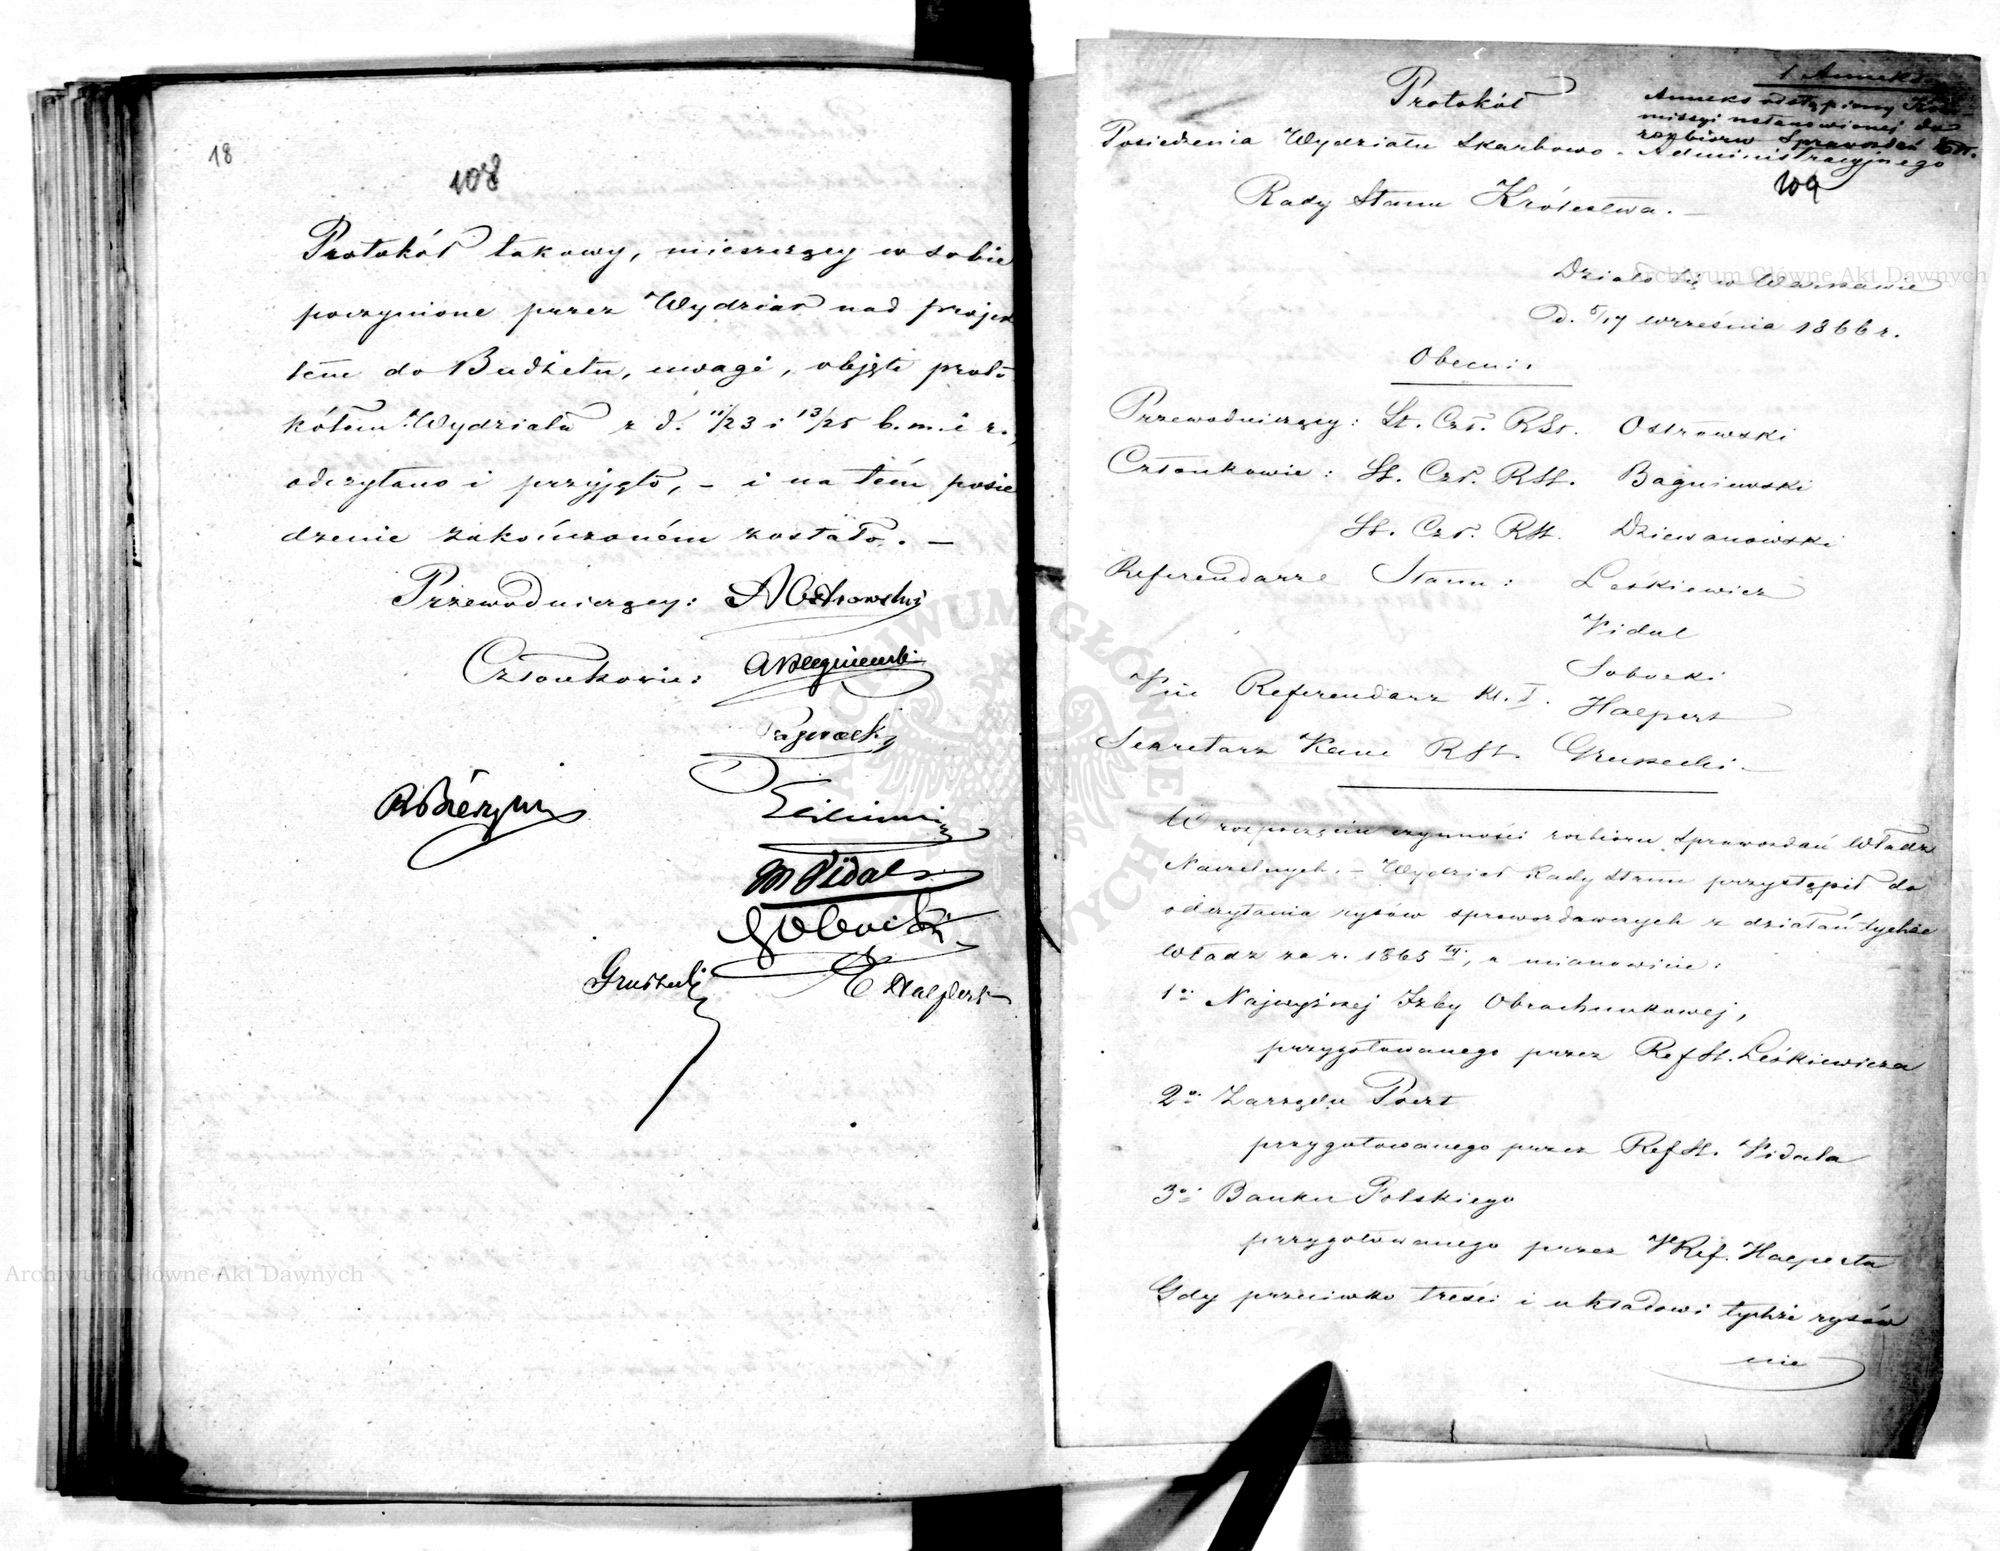 18
108
Protokół takowy, mieszczący w sobie
poczynione przez Wydział nad projek
tem do Budżetu, uwagi, objęte proto
kółem Wydziału z d. 11/23 i 13/25 b. m. i r.,
odczytano i przyjęto, – i na tém posie
dzenie zakończoném zostało. –
Przewodniczący: AOstrowski
Członkowie: ABagniewski
M Vidal
Sobocki
Gruszecki
E Halpert
1 Anneks
Anneks odstąpiony Kom
missyi ustanowionej do
rozbioru Sprawozdań
Protokół
Posiedzenia Wydziału Skarbowo-Administracyjnego
109
Rady Stanu Królestwa. –
Działo się w Warszawie
D. 5/17 września 1866 r.
Obecni:
Przewodniczący: St. Czł. RSt. Ostrowski
Członkowie: St. Czł. RSt. Bagniewski
St. Czł. RSt. Dziewanowski
Referendarze Stanu: Leśkiewicz
Vidal
Sobocki
Vice Referendarz kl. I. Halpert
Sekretarz Kanc RSt. Gruszecki –
W rozpoczęciu czynności rozbioru Sprawozdań Władz
Naczelnych. – Wydział Rady Stanu przystąpił do
odczytania rysów sprawozdawczych z działań tychże
Władz za r. 1865ty, a mianowicie:
1o: Najwyższej Izby Obrachunkowej,
przygotowanego przez RefSt. Leśkiewicza
2o: Zarządu Poczt
przygotowanego przez RefSt. Vidala
3o: Banku Polskiego
przygotowanego przez VRef. Halperta
Gdy przeciwko treści i układowi tychże rysów
nie
Archiwum Główne Akt Dawnych
Archiwum Główne Akt Dawnych
ARCHIWUM GŁÓWNE AKT DAWNYCH